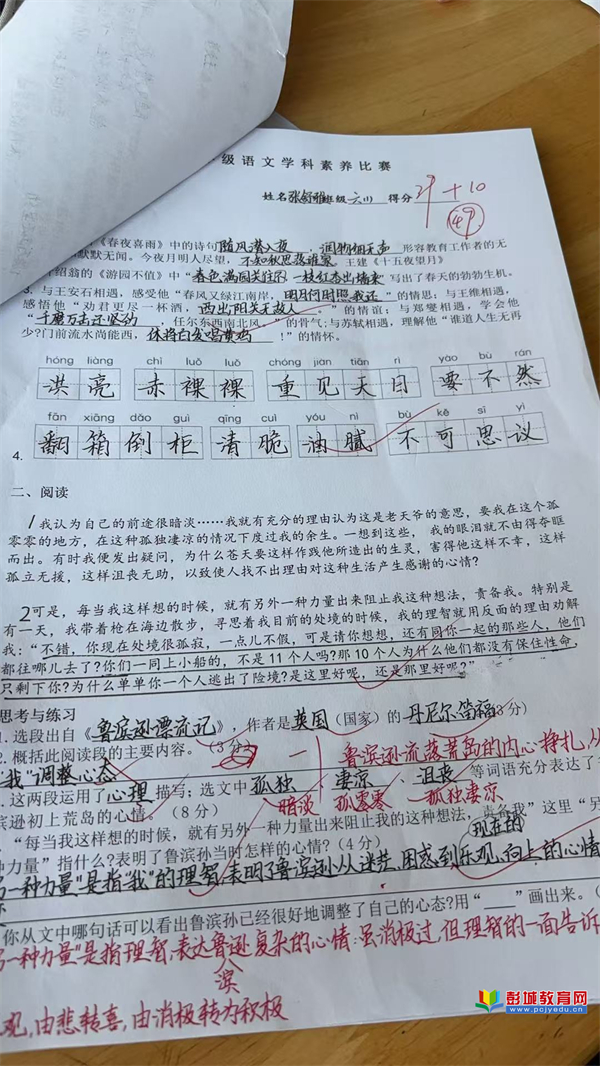 级语文学科素养比赛
姓名张舒雅班级六(1) 得分29+10
49
《春夜喜雨》中的诗句随风潜入夜,润物细无声 形容教育工作者的无
默默无闻。今夜月明人尽望,不知秋思落谁家 王建《十五夜望月》
绍翁的《游园不值》中“春色满园关不住 一枝红杏出墙来”写出了春天的勃勃生机。
3. 与王安石相遇,感受他“春风又绿江南岸,明月何时照我还”的情思;与王维相遇,
感悟他“劝君更尽一杯酒,西出阳关无故人”的情谊;与郑燮相遇,学会他
“千磨万击还坚劲 任尔东西南北风。”的骨气;与苏轼相遇,理解他“谁道人生无再
少?门前流水尚能西,休将白发唱黄鸡!”的情怀。
hóng liàng chì luǒ luǒ chóng jiàn tiān rì yào bù rán
洪亮 赤裸裸 重见天日 要不然
fān xiāng dǎo guì qīng cuì yóu nì bù kě sī yì
4. 翻箱倒柜 清脆 油腻 不可思议
二、阅读
1我认为自己的前途很暗淡……我就有充分的理由认为这是老天爷的意思,要我在这个孤
零零的地方,在这种孤独凄凉的情况下度过我的余生。一想到这些,我的眼泪就不由得夺眶
而出。有时我便发出疑问,为什么苍天要这样作践他所造出的生灵,害得他这样不幸,这样
孤立无援,这样沮丧无助,以致使人找不出理由对这种生活产生感谢的心情?
2可是,每当我这样想的时候,就有另外一种力量出来阻止我这种想法,责备我。特别是
有一天,我带着枪在海边散步,寻思着我目前的处境的时候,我的理智就用反面的理由劝解
我:“不错,你现在处境很孤寂,一点儿不假,可是请你想想,还有同你一起的那些人,他们
都往哪儿去了?你们一同上小船的,不是11个人吗?那10个人为什么他们都没有保住性命,
只剩下你?为什么单单你一个人逃出了险境?是这里好呢,还是那里好呢?”
思考与练习
1. 选段出自《鲁滨逊漂流记》,作者是英国(国家)的丹尼尔笛福(3分)
2. 概括此阅读段的主要内容。(3分) 鲁滨逊流落荒岛的内心挣扎,从
“我”调整心态
这两段运用了心理描写;选文中孤独 凄凉 沮丧等词语充分表达了
滨逊初上荒岛的心情。(8分) 暗淡 孤零零 孤独凄凉
“每当我这样想的时候,就有另外一种力量出来阻止我的这种想法,责备我”这里“另
种力量”指什么?表明了鲁滨孙当时怎样的心情?(4分) 现在的
另一种力量”是指“我”的理智,表明了鲁滨逊从迷茫、困惑到乐观、向上的心情
你从文中哪句话可以看出鲁滨孙已经很好地调整了自己的心态?用“____”画出来。(
另一种力量”是指理智,表达鲁逊复杂的心情:虽消极过,但理智的一面告诉
滨
观,由悲转喜,由消极转为积极
彭城教育网
www.pcjyedu.cn